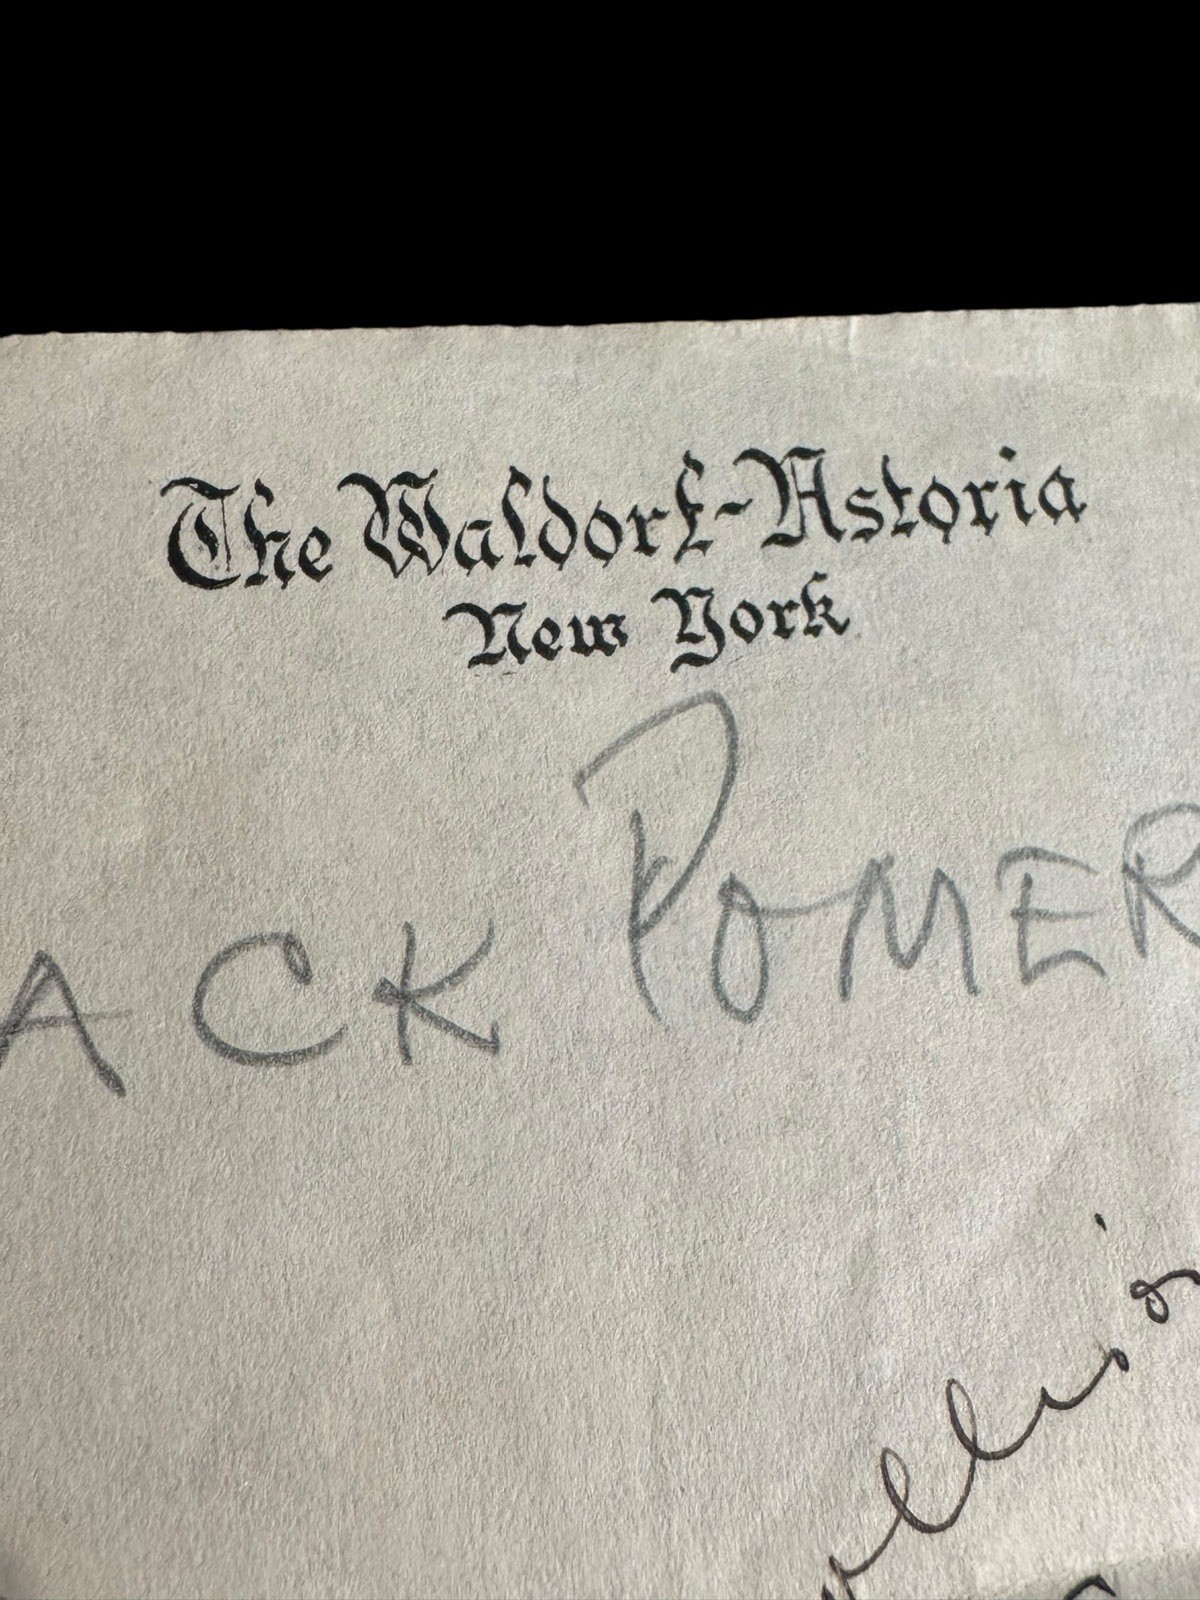 The Waldorf-Astoria
New York
ACK POMER